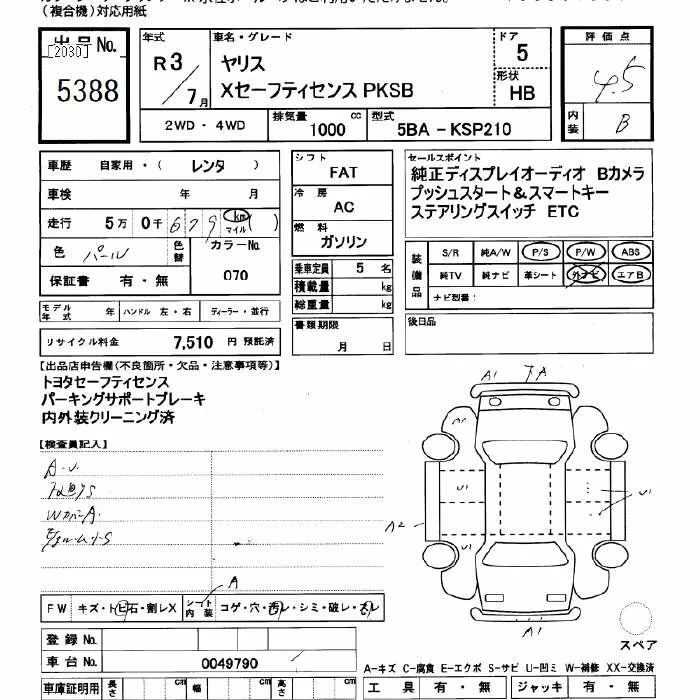 （複合機）対応用紙
出品No.
[2030]
5388
年式
R3/7月
車名・グレード
ヤリス
Xセーフティセンス PKSB
ドア
5
形状
HB
2WD・4WD
排気量
1000 cc
型式
5BA - KSP210
評価点
4.5
内装
B
車歴 自家用・( レンタ )
車検 年 月
走行 5万 0千 679 km マイル ( )
色 パール
色替
カラーNo.
070
保証書 有・無
モデル年式 年
ハンドル 左・右
ディーラー・並行
リサイクル料金 7,510 円 預託済
シフト
FAT
冷房
AC
燃料
ガソリン
乗車定員 5 名
積載量 kg
総重量 kg
書類期限
月 日
セールスポイント
純正ディスプレイオーディオ Bカメラ
プッシュスタート&スマートキー
ステアリングスイッチ ETC
装備品
S/R 純A/W P/S P/W ABS
純TV 純ナビ 革シート 外ナビ エアB
ナビ型番：
後日品
【出品店申告欄(不良箇所・欠品・注意事項等)】
トヨタセーフティセンス
パーキングサポートブレーキ
内外装クリーニング済
【検査員記入】
A.U.
A
FW キズ・トビ石・割レX
シート内装
コゲ・穴・汚レ・シミ・破レ・スレ
登録No.
車台No. 0049790
車庫証明用 長さ cm 幅 cm 高さ cm
A1
A
U1
U1
U1
A2
U1
A1
スペア
A-キズ C-腐食 E-エクボ S-サビ U-凹ミ W-補修 XX-交換済
工具 有・無 ジャッキ 有・無